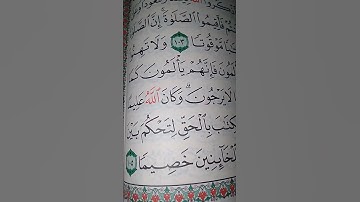 فَأَقِيمُوا۟ ٱلصَّلَوٰةَ ۚ إِنَّ ٱلصَّلَ
مَّوْقُوتًا ١٠٣ وَلَا تَهِ
لَمُونَ فَإِنَّهُمْ يَأْلَمُونَ كَمَ
لَا يَرْجُونَ ۗ وَكَانَ ٱللَّهُ عَلِيمً
كِتَٰبَ بِٱلْحَقِّ لِتَحْكُمَ بَيْنَ
لِّلْخَآئِنِينَ خَصِيمًا ١٠٥